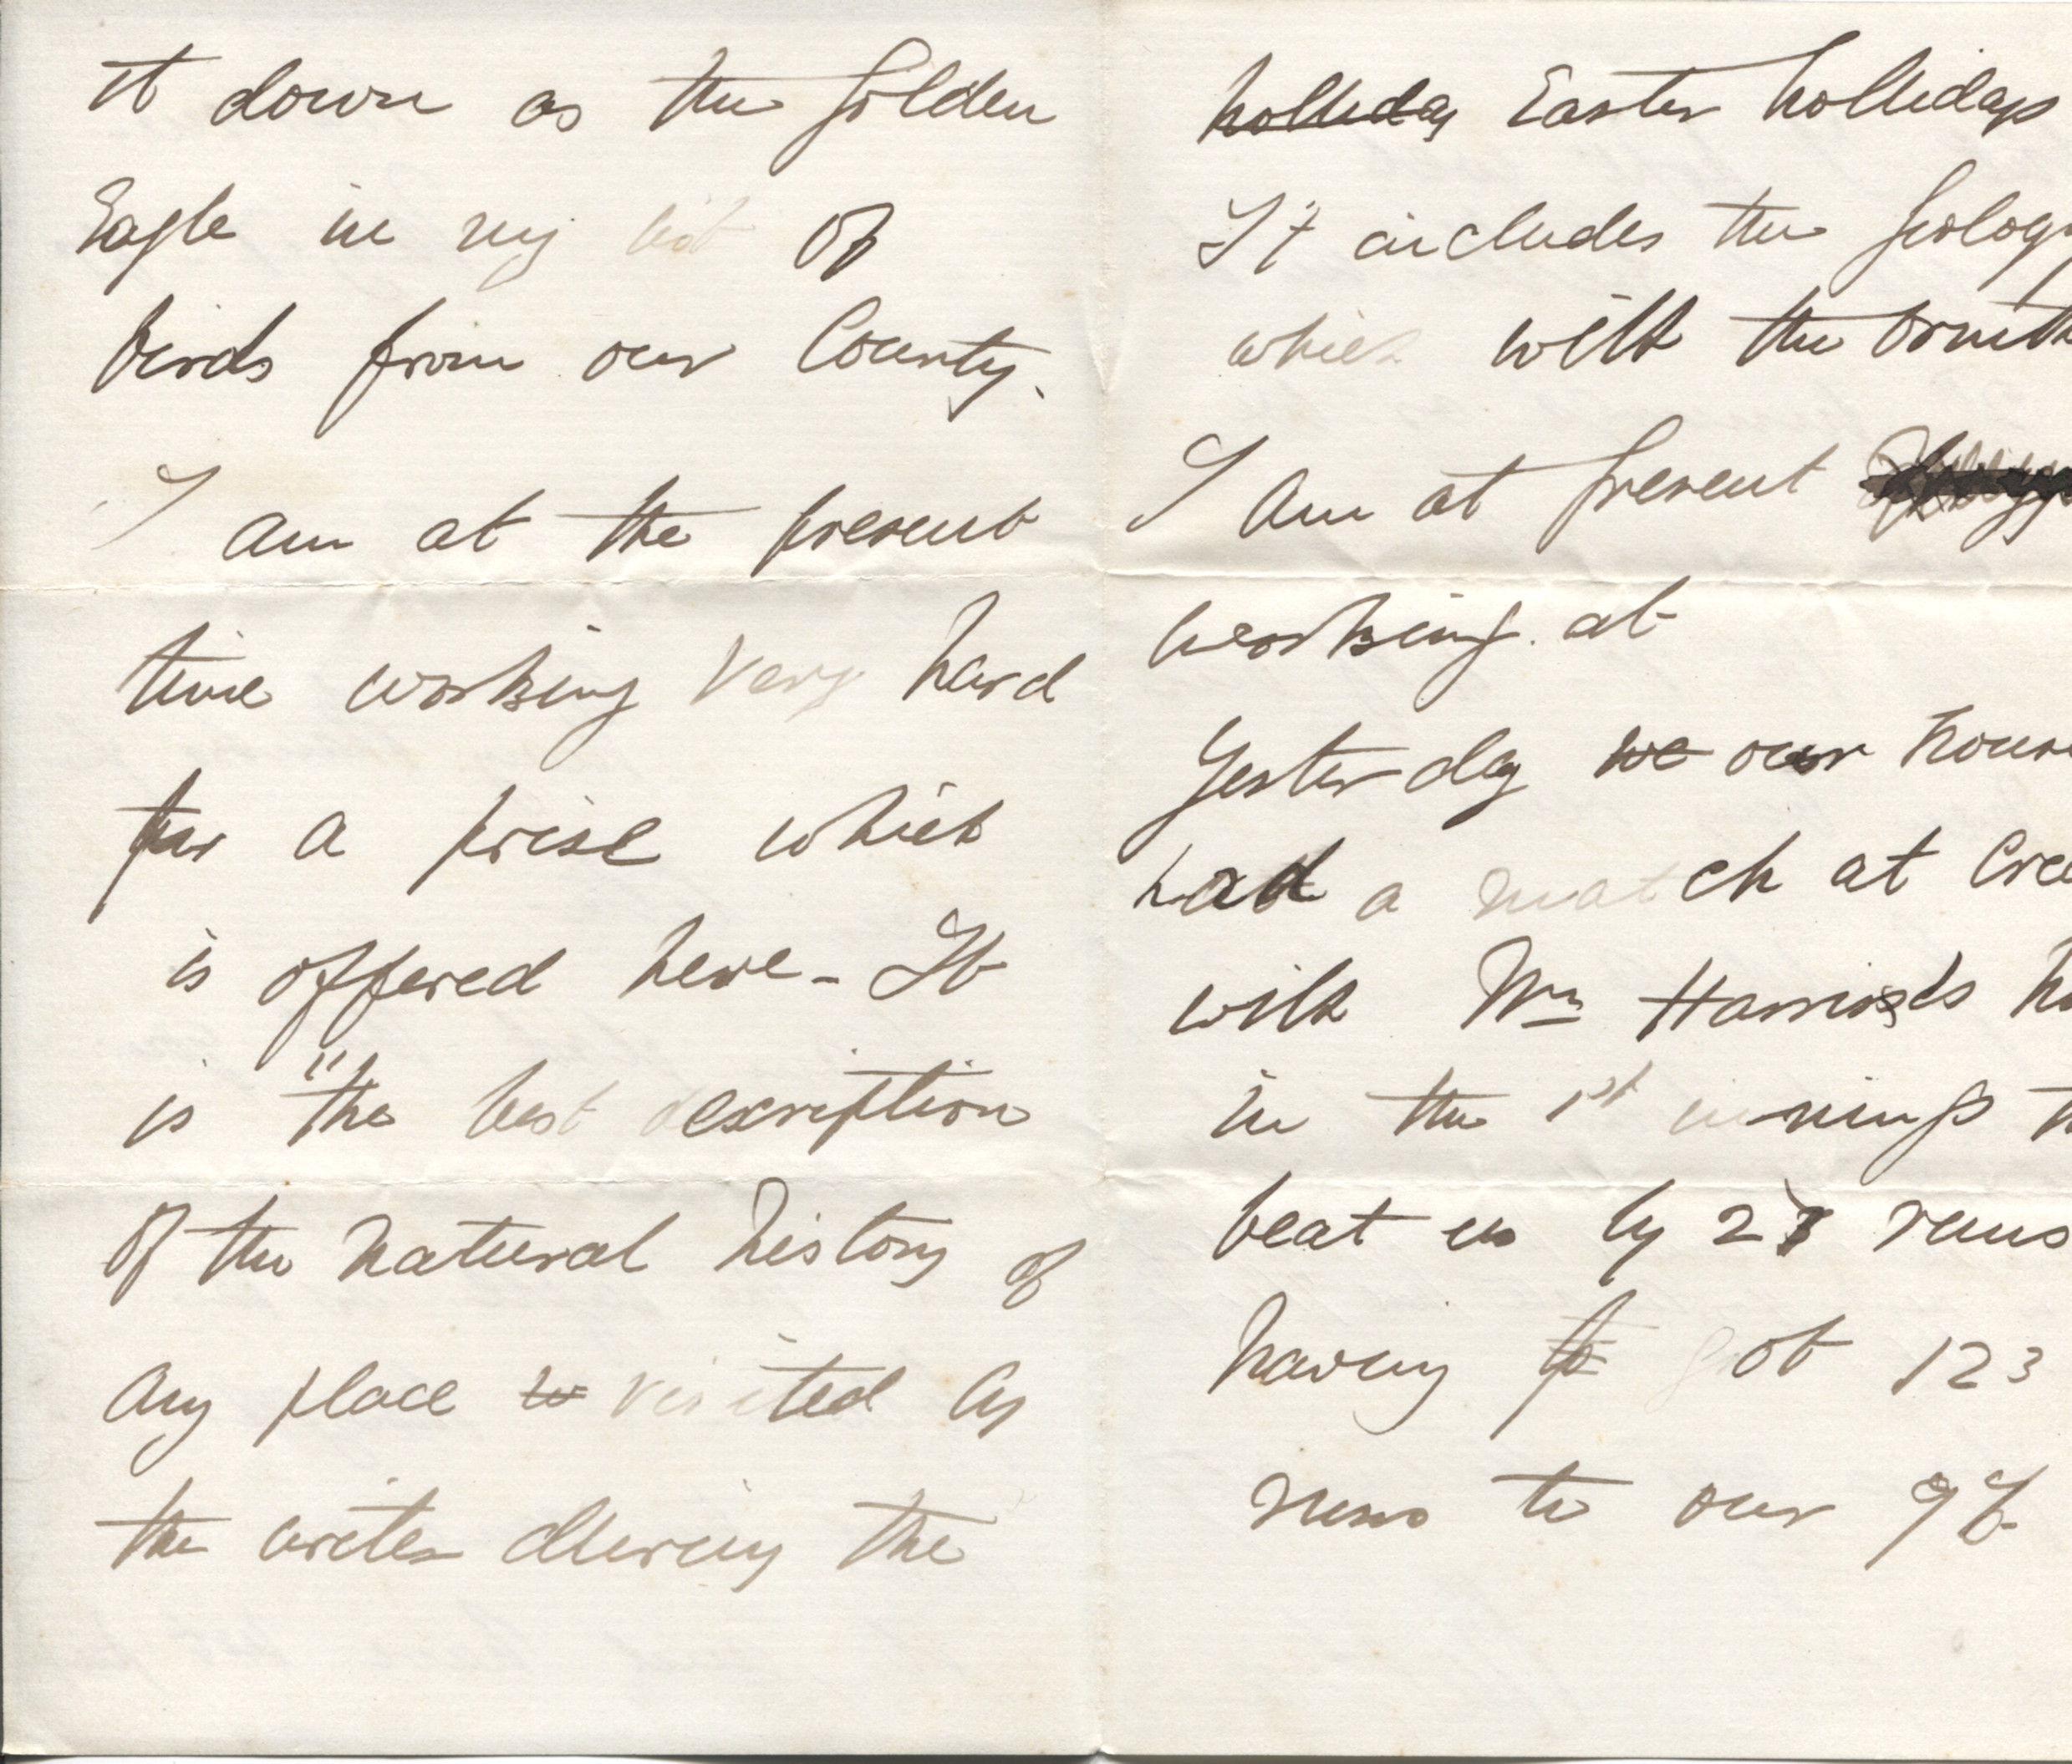 it down as the Golden
Eagle in my list of
birds from our County.
I am at the present
time working very hard
for a prise which
is offered here - It
is "the best description
of the natural history of
any place visited by
the writer during the
holliday Easter hollidays
It includes the geology
which with the ornith
I am at present
working at
Yesterday we our house
had a match at Cric
with Mr Harris's
in the 1st innings
beat us by runs
having got 123
runs to our